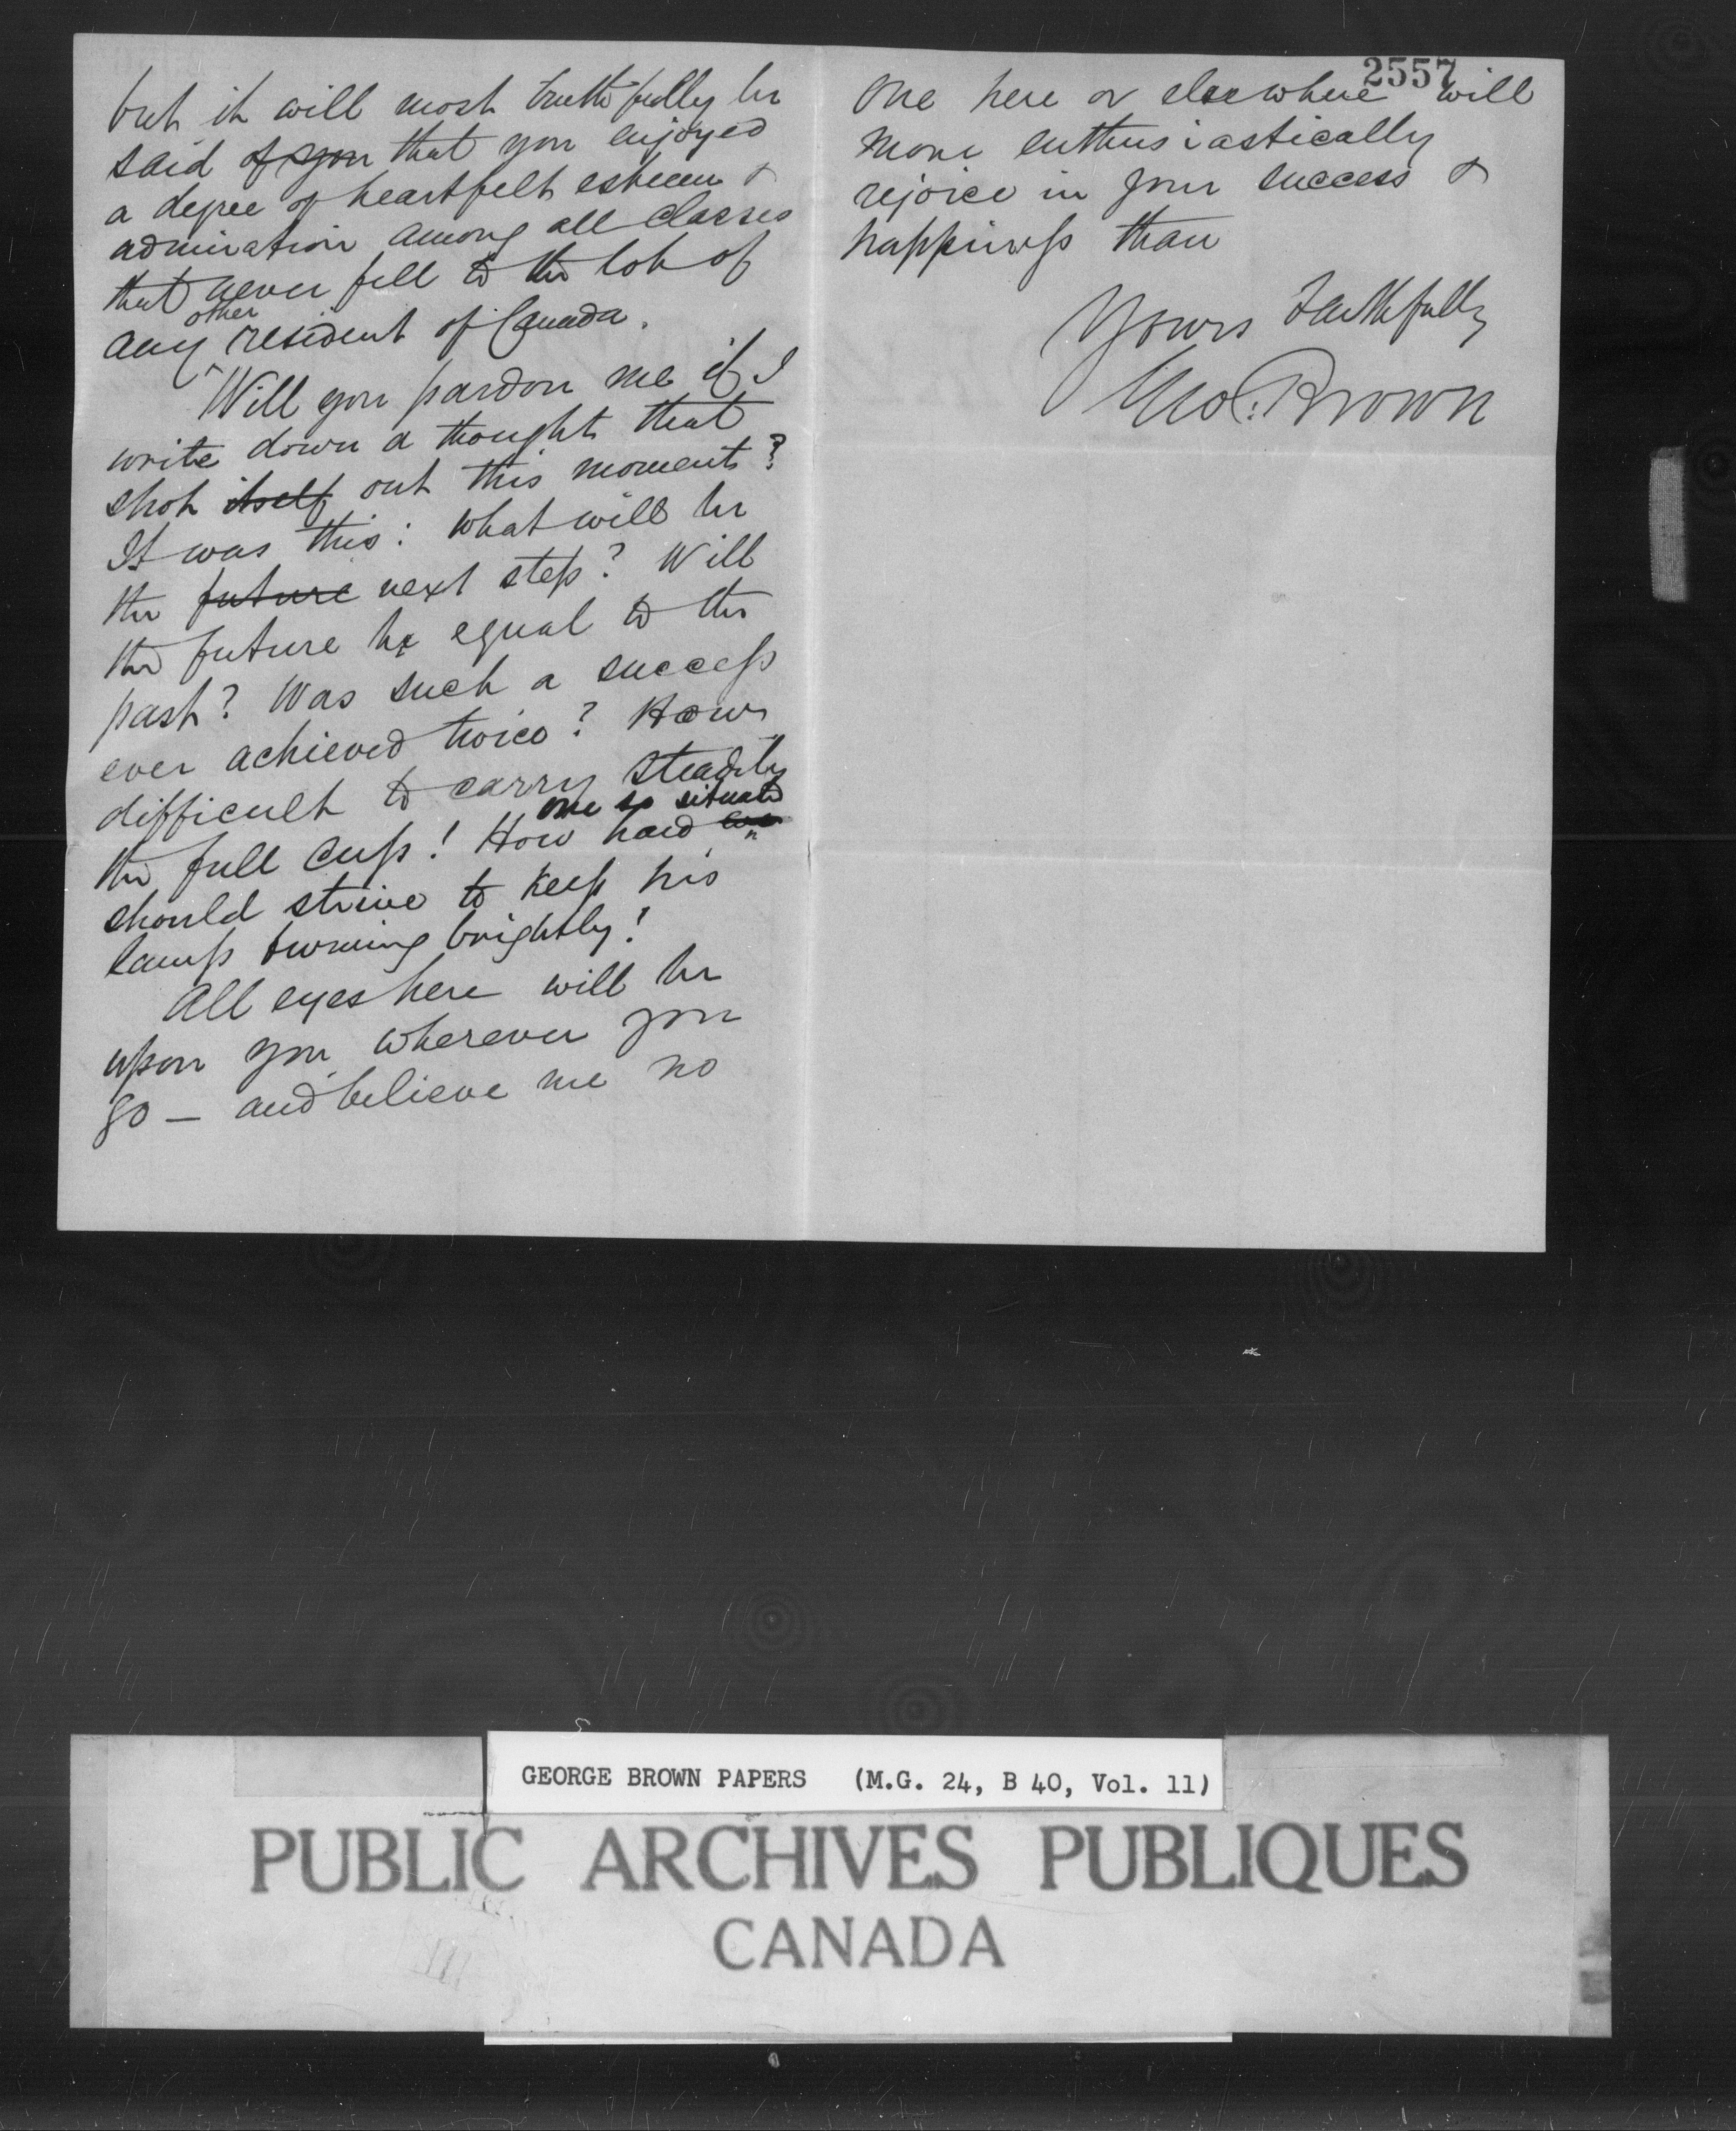 but it will most truthfully be
said of you that you enjoyed
a degree of heartfelt esteem &
admiration among all classes
that never fell to the lot of
any other resident of Canada.
Will you pardon me if I
write down a thought that
shot itself out this moment?
It was this: what will be
the future next step? Will
the future be equal to the
past? Was such a success
ever achieved twice? How
difficult to carry steadily
the full cup! How hard one so situated
should strive to keep his
lamp burning brightly!
All eyes here will be
upon you wherever you
go — and believe me no
2557
one here or elsewhere will
more enthusiastically
rejoice in your success &
happiness than
Yours faithfully
Geo. Brown
GEORGE BROWN PAPERS (M.G. 24, B 40, Vol. 11)
PUBLIC ARCHIVES PUBLIQUES
CANADA